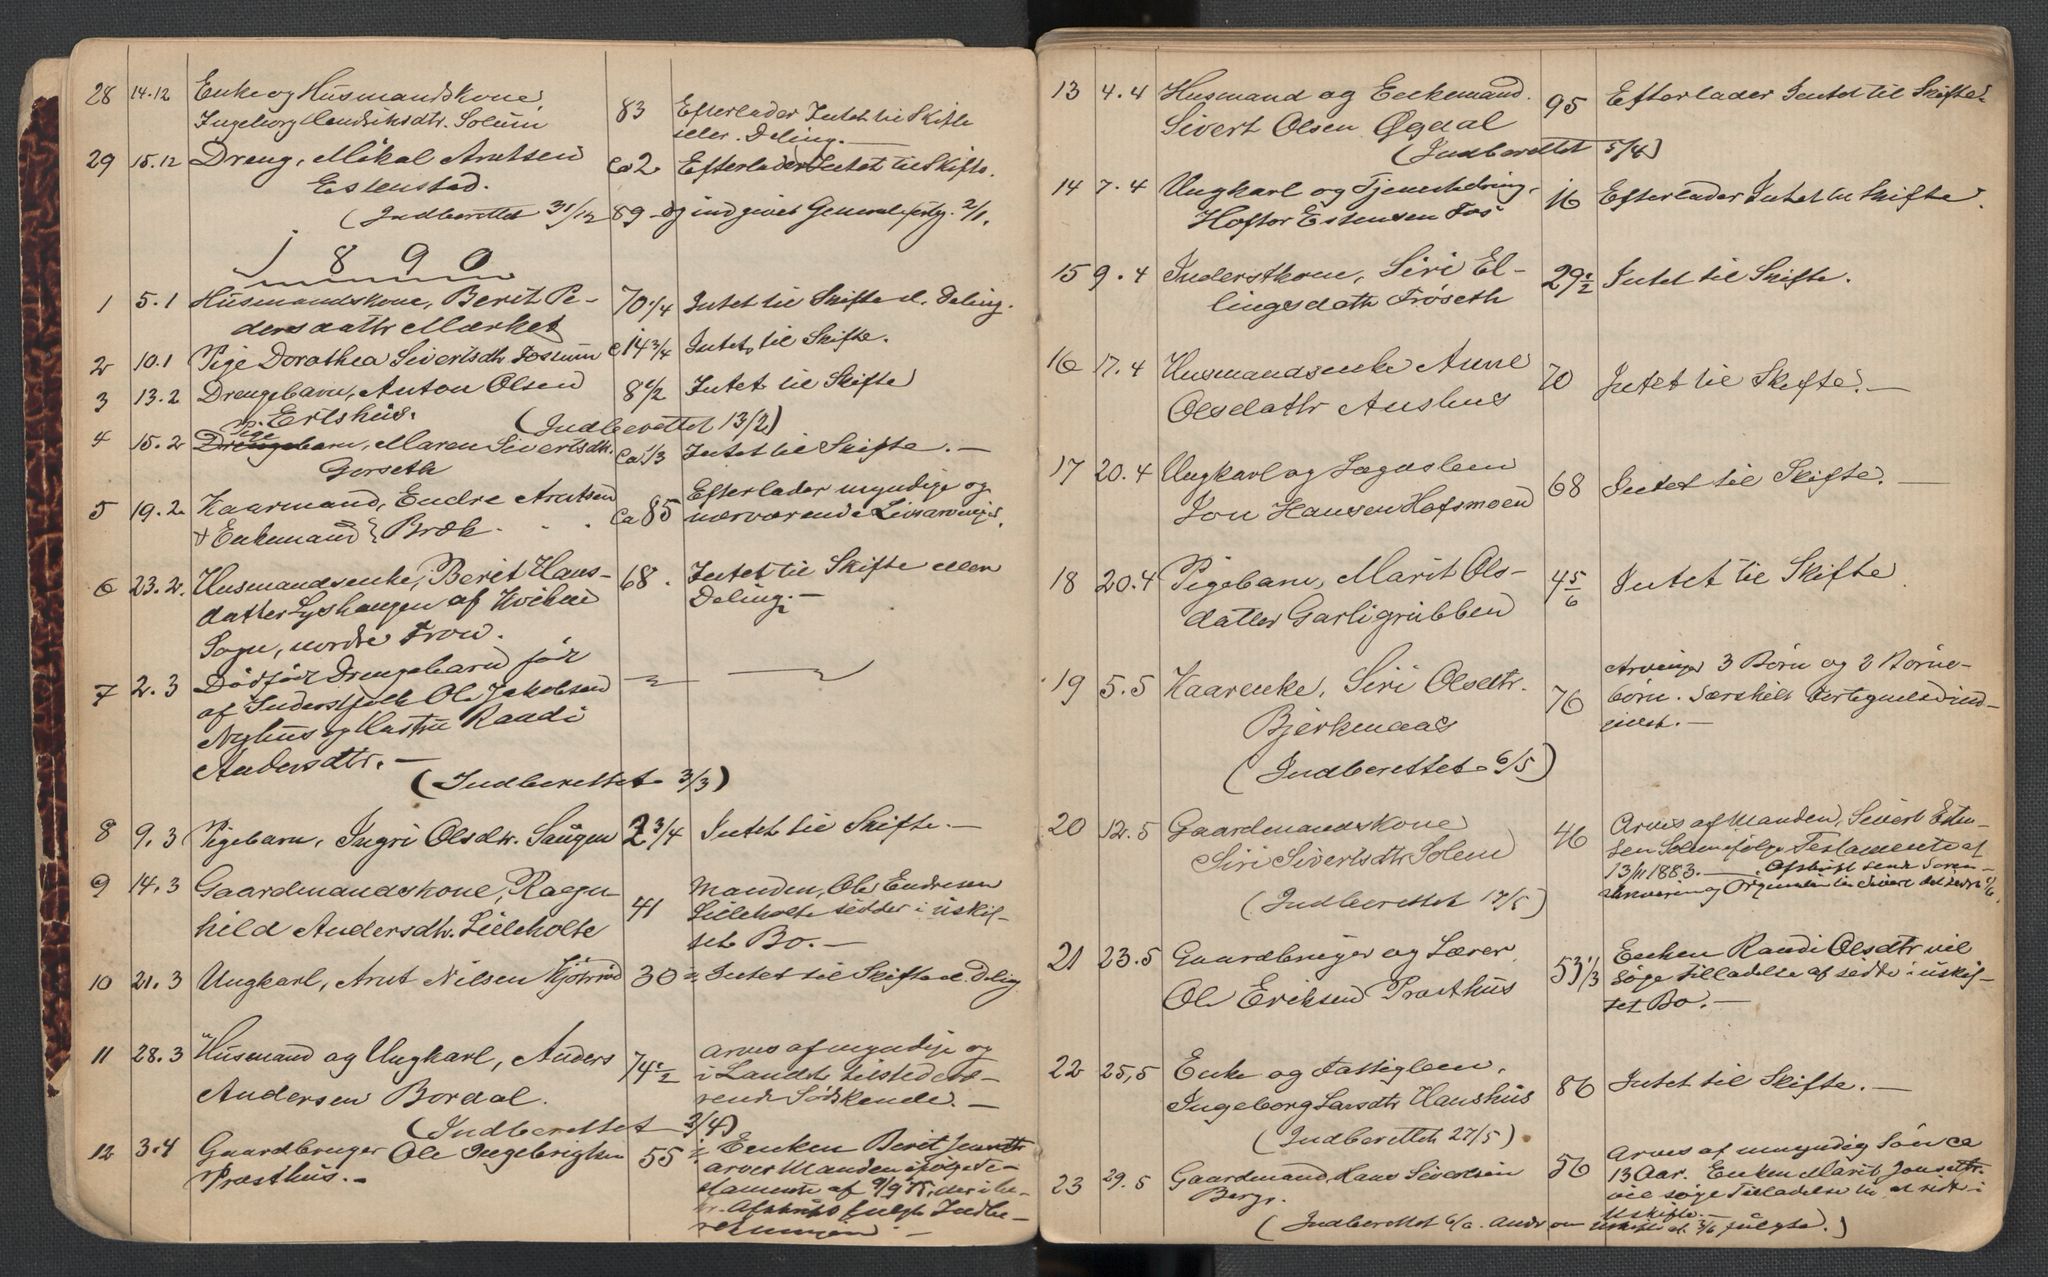 28 14.12 Enke og Husmandskone, 83 Efterlader Intet til Skifte
Ingeborg Hendriksdtr. Solum eller Deling.—
29 15.12 Dreng, Mikal Arntsen Ca 2 Efterlader Intet til Skifte.
Estenstad.
(Indberettet 31/12 89 – og indgivet Generalfortg. 2/1.
1890
1 5.1 Husmandskone, Berit Pe- 70 1/4 Intet til Skifte el. Deling.
dersdattr Mærket
2 10.1 Pige Dorothea Sivertsdtr. Fossum 14 3/4 Intet til Skifte.
3 13.2 Drengebarn, Anton Olsen 8 1/2 Intet til Skifte
Ertshus. (Indberettet 13/2)
Pige
4 15.2 Drengebarn, Maren Sivertsdtr. Ca 1/3 Intet til Skifte.—
Gorseth
5 19.2 Kaarmand, Endre Arntsen Ca 85 Efterlader myndige og
+ Enkemand } Bræk. nærværende Livsarvinger.
6 23.2. Husmandsenke, Berit Hans- 68. Intet til Skifte eller
datter Lyshaugen af Kvikne Deling.—
Sogn, nordre Fron.
7 2.3 Dødfødt Drengebarn født — —
af Inderstfolk Ole Jakobsen
Nyhus og Hustru Randi
Andersdtr.—
(Indberettet 3/3)
8 9.3 Pigebarn, Ingri Olsdtr. Saugen 2 3/4 Intet til Skifte.—
9 14.3 Gaardmandskone, Ragn- 41 Manden, Ole Endresen
hild Andersdtr. Lilleholte Lilleholte sidder i uskif-
tet Bo.—
10 21.3 Ungkarl, Arnt Nilsen 30 Intet til Skifte el. Delig
11 28.3 Husmand og Ungkarl, Anders 74 1/2 Arves af myndige og
Andersen Bordal. i Landet tilstedevæ-
rende Sødskende.—
(Indberettet 3/4)
12 3.4 Gaardbruger Ole Ingebrigtsen 55 Enken Berit Jensdtr
Præsthus.— arver Manden ifølge Te-
stamente af 9/9 75, der i be-
kr. Afskrift fulgte Indbe-
retningen—
13 4.4 Husmand og Enkemand. 95 Efterlader Intet til Skifte.
Sivert Olsen Øgdal
(Indberettet 5/4)
14 7.4 Ungkarl og Tjenestedreng, 16 Efterlader Intet til Skifte.
Hoftor Estensen Fos
15 9.4 Inderstkone, Siri El- 29 1/2 Intet til Skifte.
lingsdattr Frøseth
16 17.4 Husmandsenke Anne 70 Intet til Skifte.—
Olsdattr Aushus
17 20.4 Ungkarl og Lægdslem 68 Intet til Skifte.—
Jon Hansen Hofsmoen
18 20.4 Pigebarn, Marit Ols- 4 5/6 Intet til Skifte
datter Garligrubben
19 5.5 Kaarenke, Siri Olsdtr. 76 Arvinger 3 Børn og 2 Børne-
Bjerkenaas børn. Særskilt Fortegnelse ind-
givet.—
(Indberettet 6/5)
20 12.5 Gaardmandskone 46 Arves af Manden, Sivert Esten-
Siri Sivertsdtr Solem sen Solem ifølge Testamente af
13/11 1883.—. Afskrift sendt Soren-
skriveren og Originalen til Sivert
(Indberettet 17/5)
21 23.5 Gaardbruger og Lærer, 53 1/3 Enken Randi Olsdtr vil
Ole Eriksen Præsthus søge Tilladelse af sidde i uskif-
tet Bo.—
22 25,5 Enke og Fattiglem, 86 Intet til Skifte.—
Ingeborg Larsdtr Haushus
(Indberettet 27/5)
23 29.5 Gaardmand, Hans Sivertsen 56 Arves af umyndig Søn ca
Berg. 13 Aar. Enken Marit Jonsdtr.
vil søge Tilladelse til at sidde i
Uskifte.—
(Indberettet 6/6. Andr om Uskifte af 3/6 fulgte.)